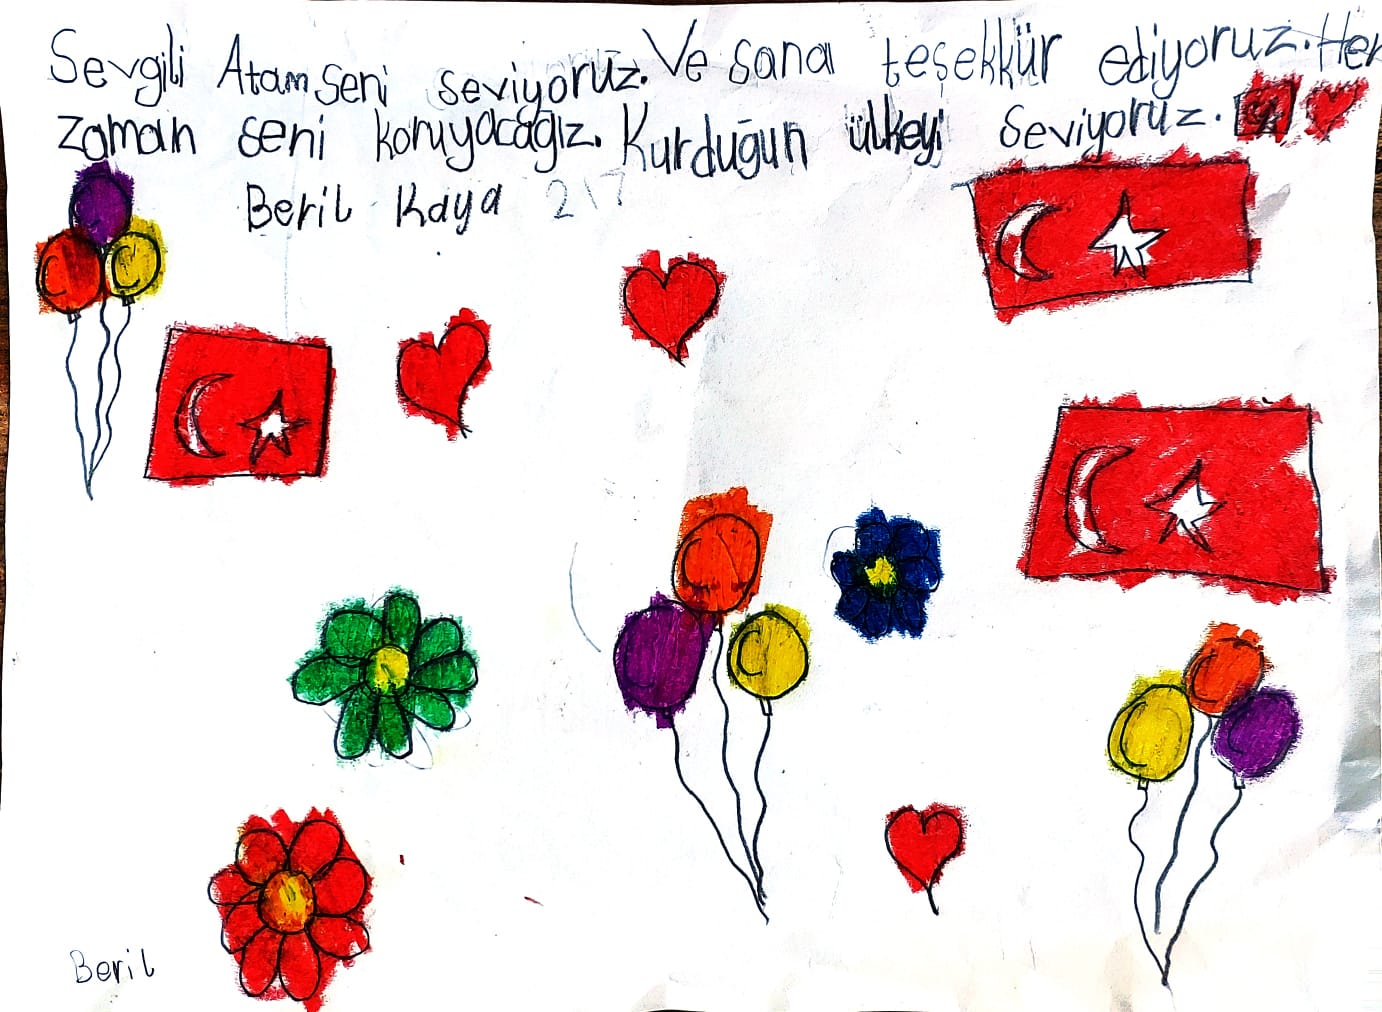 Sevgili Atam seni seviyoruz. Ve sana teşekkür ediyoruz. Her
zaman seni koruyacağız. Kurduğun ülkeyi seviyoruz.
Beril Kaya 217
Beril